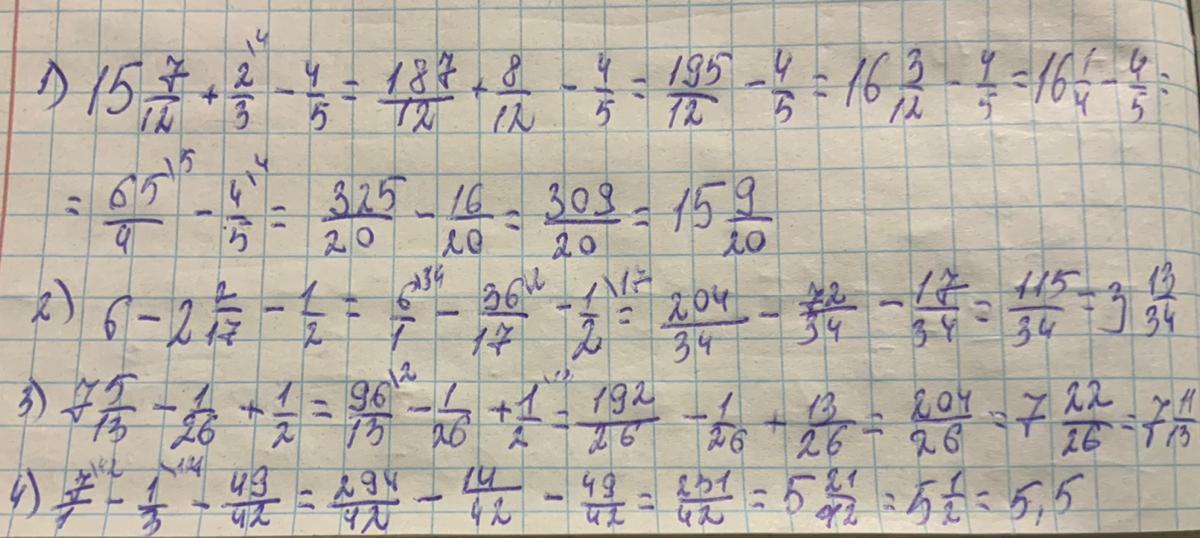 1) 15 7/12 + 2/3 \4 - 4/5 = 187/12 + 8/12 - 4/5 = 195/12 - 4/5 = 16 3/12 - 4/5 = 16 1/4 - 4/5 =
= 65/4 \5 - 4/5 \4 = 325/20 - 16/20 = 309/20 = 15 9/20
2) 6 - 2 2/17 - 1/2 = 6/1 \34 - 36/17 \2 - 1/2 \17 = 204/34 - 72/34 - 17/34 = 115/34 = 3 13/34
3) 7 5/13 - 1/26 + 1/2 = 96/13 \2 - 1/26 + 1/2 \13 = 192/26 - 1/26 + 13/26 = 204/26 = 7 22/26 = 7 11/13
4) 7/1 \42 - 1/3 \14 - 49/42 = 294/42 - 14/42 - 49/42 = 231/42 = 5 21/42 = 5 1/2 = 5,5